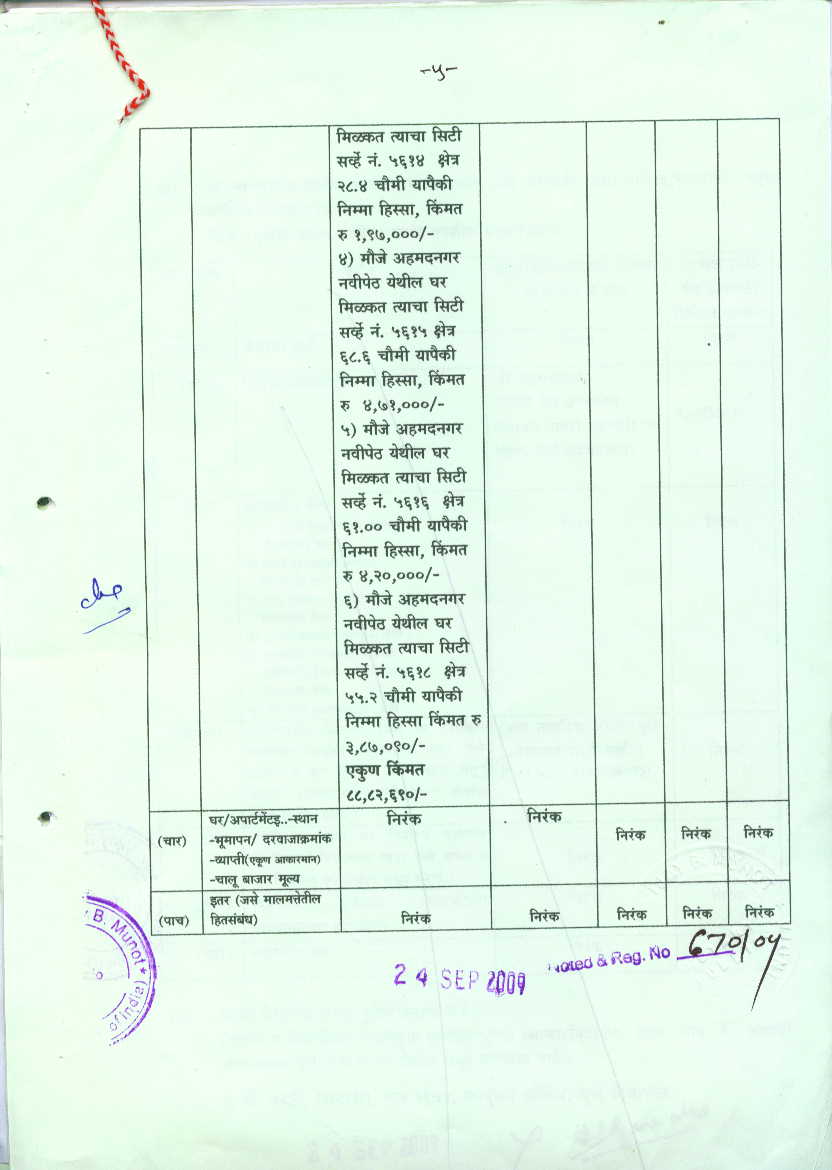 -५-
मिळकत त्याचा सिटी
सर्व्हे नं. ५६१४ क्षेत्र
२८.४ चौमी यापैकी
निम्मा हिस्सा, किंमत
रु १,९७,०००/-
४) मौजे अहमदनगर
नवीपेठ येथील घर
मिळकत त्याचा सिटी
सर्व्हे नं. ५६१५ क्षेत्र
६८.६ चौमी यापैकी
निम्मा हिस्सा, किंमत
रु ४,७१,०००/-
५) मौजे अहमदनगर
नवीपेठ येथील घर
मिळकत त्याचा सिटी
सर्व्हे नं. ५६१६ क्षेत्र
६१.०० चौमी यापैकी
निम्मा हिस्सा, किंमत
रु ४,२०,०००/-
६) मौजे अहमदनगर
नवीपेठ येथील घर
मिळकत त्याचा सिटी
सर्व्हे नं. ५६१८ क्षेत्र
५५.२ चौमी यापैकी
निम्मा हिस्सा किंमत रु
३,८७,०९०/-
एकुण किंमत
८८,८२,६९०/-
(चार) घर/अपार्टमेंटइ..-स्थान निरंक निरंक निरंक निरंक निरंक
-भूमापन/ दरवाजाक्रमांक
-व्याप्ती(एकूण आकारमान)
-चालू बाजार मूल्य
(पाच) इतर (जसे मालमत्तेतील निरंक निरंक निरंक निरंक निरंक
हितसंबंध)
B. Munot *
of India)
24 SEP 2009
Noted & Reg. No 670/09